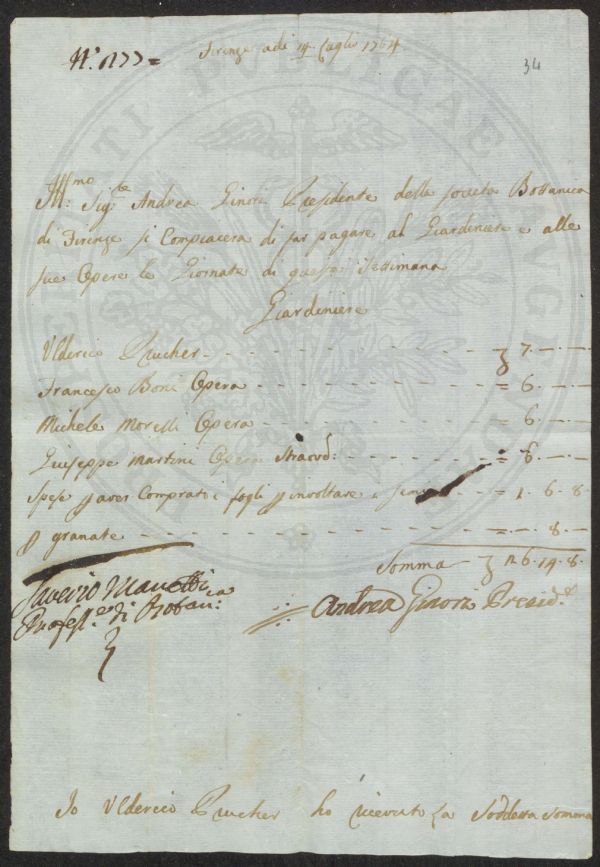 N.° 177 =
Firenze adi 14 Luglio 1764
34
Ill:mo Sig:re Andrea Ginori Presidente della società Bottanica
di Firenze si Compiacera di far pagare al Giardiniere e alle
sue Opere le Giornate di questa Settimana
Giardiniere
Ulderico Prucher - - - 7. — . —
Francesco Boni Opera - - - = 6. — . —
Michele Morelli Opera - - - 6. — . —
Giuseppe Martini Opera Stracord: = 6. — . —
Spese p aver Comprato i fogli p involtare i semi - - = 1. 6. 8.
p granate - - - = — . 8. —
Somma 26. 14. 8.
Saverio Manetti
Profess.re di Botan:ca
Andrea Ginori Presid.e
Io Ulderico Prucher ho ricevuto La Soddetta Somma